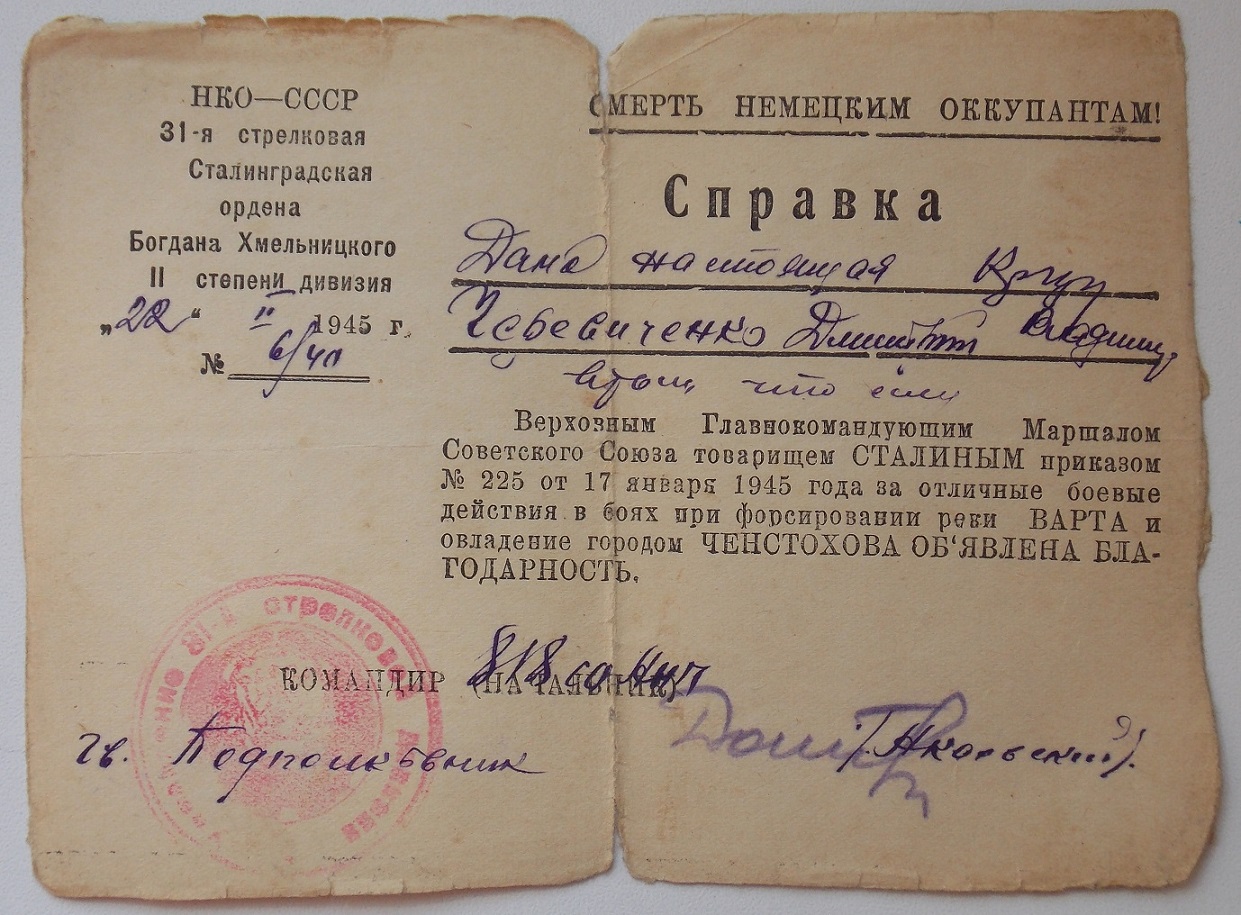 НКО—СССР
31-я стрелковая
Сталинградская
ордена
Богдана Хмельницкого
II степени дивизия
„22“ II 1945 г.
№
СМЕРТЬ НЕМЕЦКИМ ОККУПАНТАМ!
Справка
Дана настоящая
Чебевиченко
что
Верховным Главнокомандующим Маршалом
Советского Союза товарищем СТАЛИНЫМ приказом
№ 225 от 17 января 1945 года за отличные боевые
действия в боях при форсировании реки ВАРТА и
овладение городом ЧЕНСТОХОВА ОБ‘ЯВЛЕНА БЛА-
ГОДАРНОСТЬ.
КОМАНДИР (НАЧАЛЬНИК) 818
гв. Подполковник
31-я стрелковая дивизия